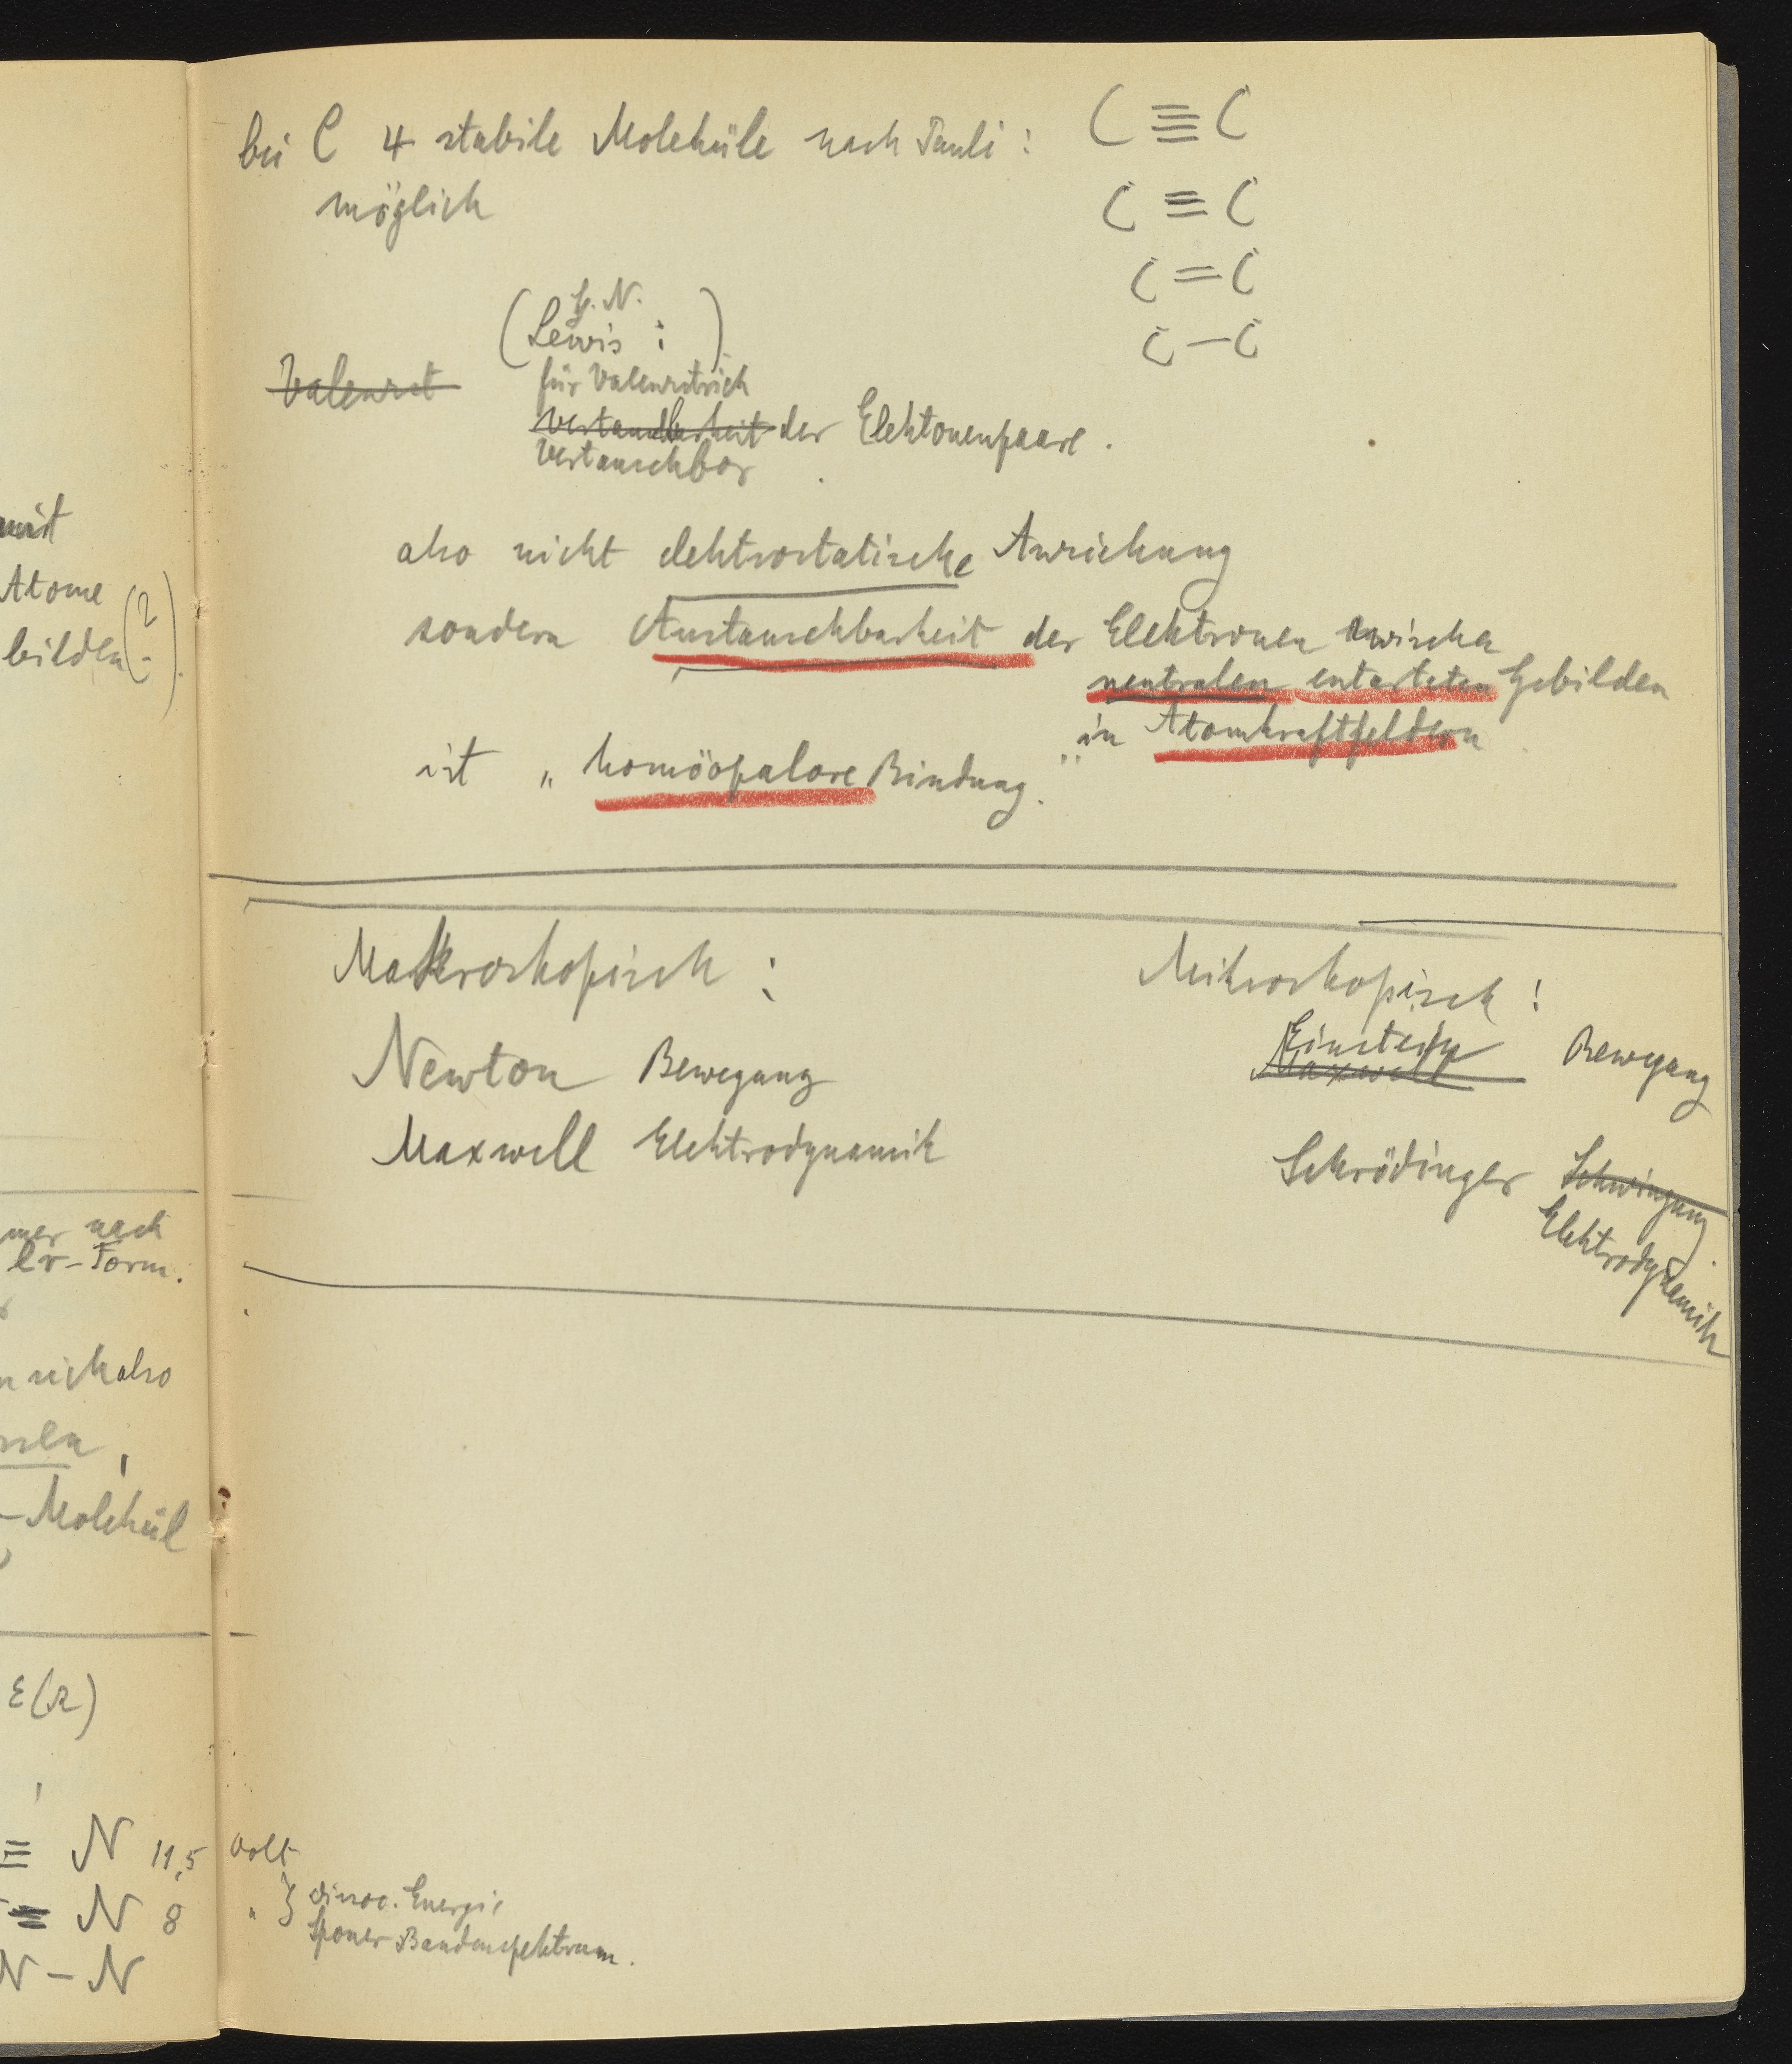 mit
Atome
bilden (?)
mer nach
lr-Form.
n sich also
ssen,
-Molekül
ε(r)
≡ N 11,5 Volt
= N 8 " } dissoc. Energie
Sponer Bandenspektrum.
N – N
bei C 4 stabile Moleküle nach Pauli:
möglich
C ≣ C
C ≡ C
C = C
C – C
G. N.
(Lewis : )
Valenzst
für Valenzstrich
Vertauschbarkeit der Elektonenpaare.
Vertauschbar
also nicht elektrostatische Anziehung
sondern Austauschbarkeit der Elektronen zwischen
neutralen entarteten Gebilden
in Atomkraftfeldern
ist „homöopolare Bindung."
Makroskopisch :
Newton Bewegung
Maxwell Elektrodynamik
Mikroskopisch :
Einstein Bewegung
Maxwell
Schrödinger Schwingung
Elektrodynamik